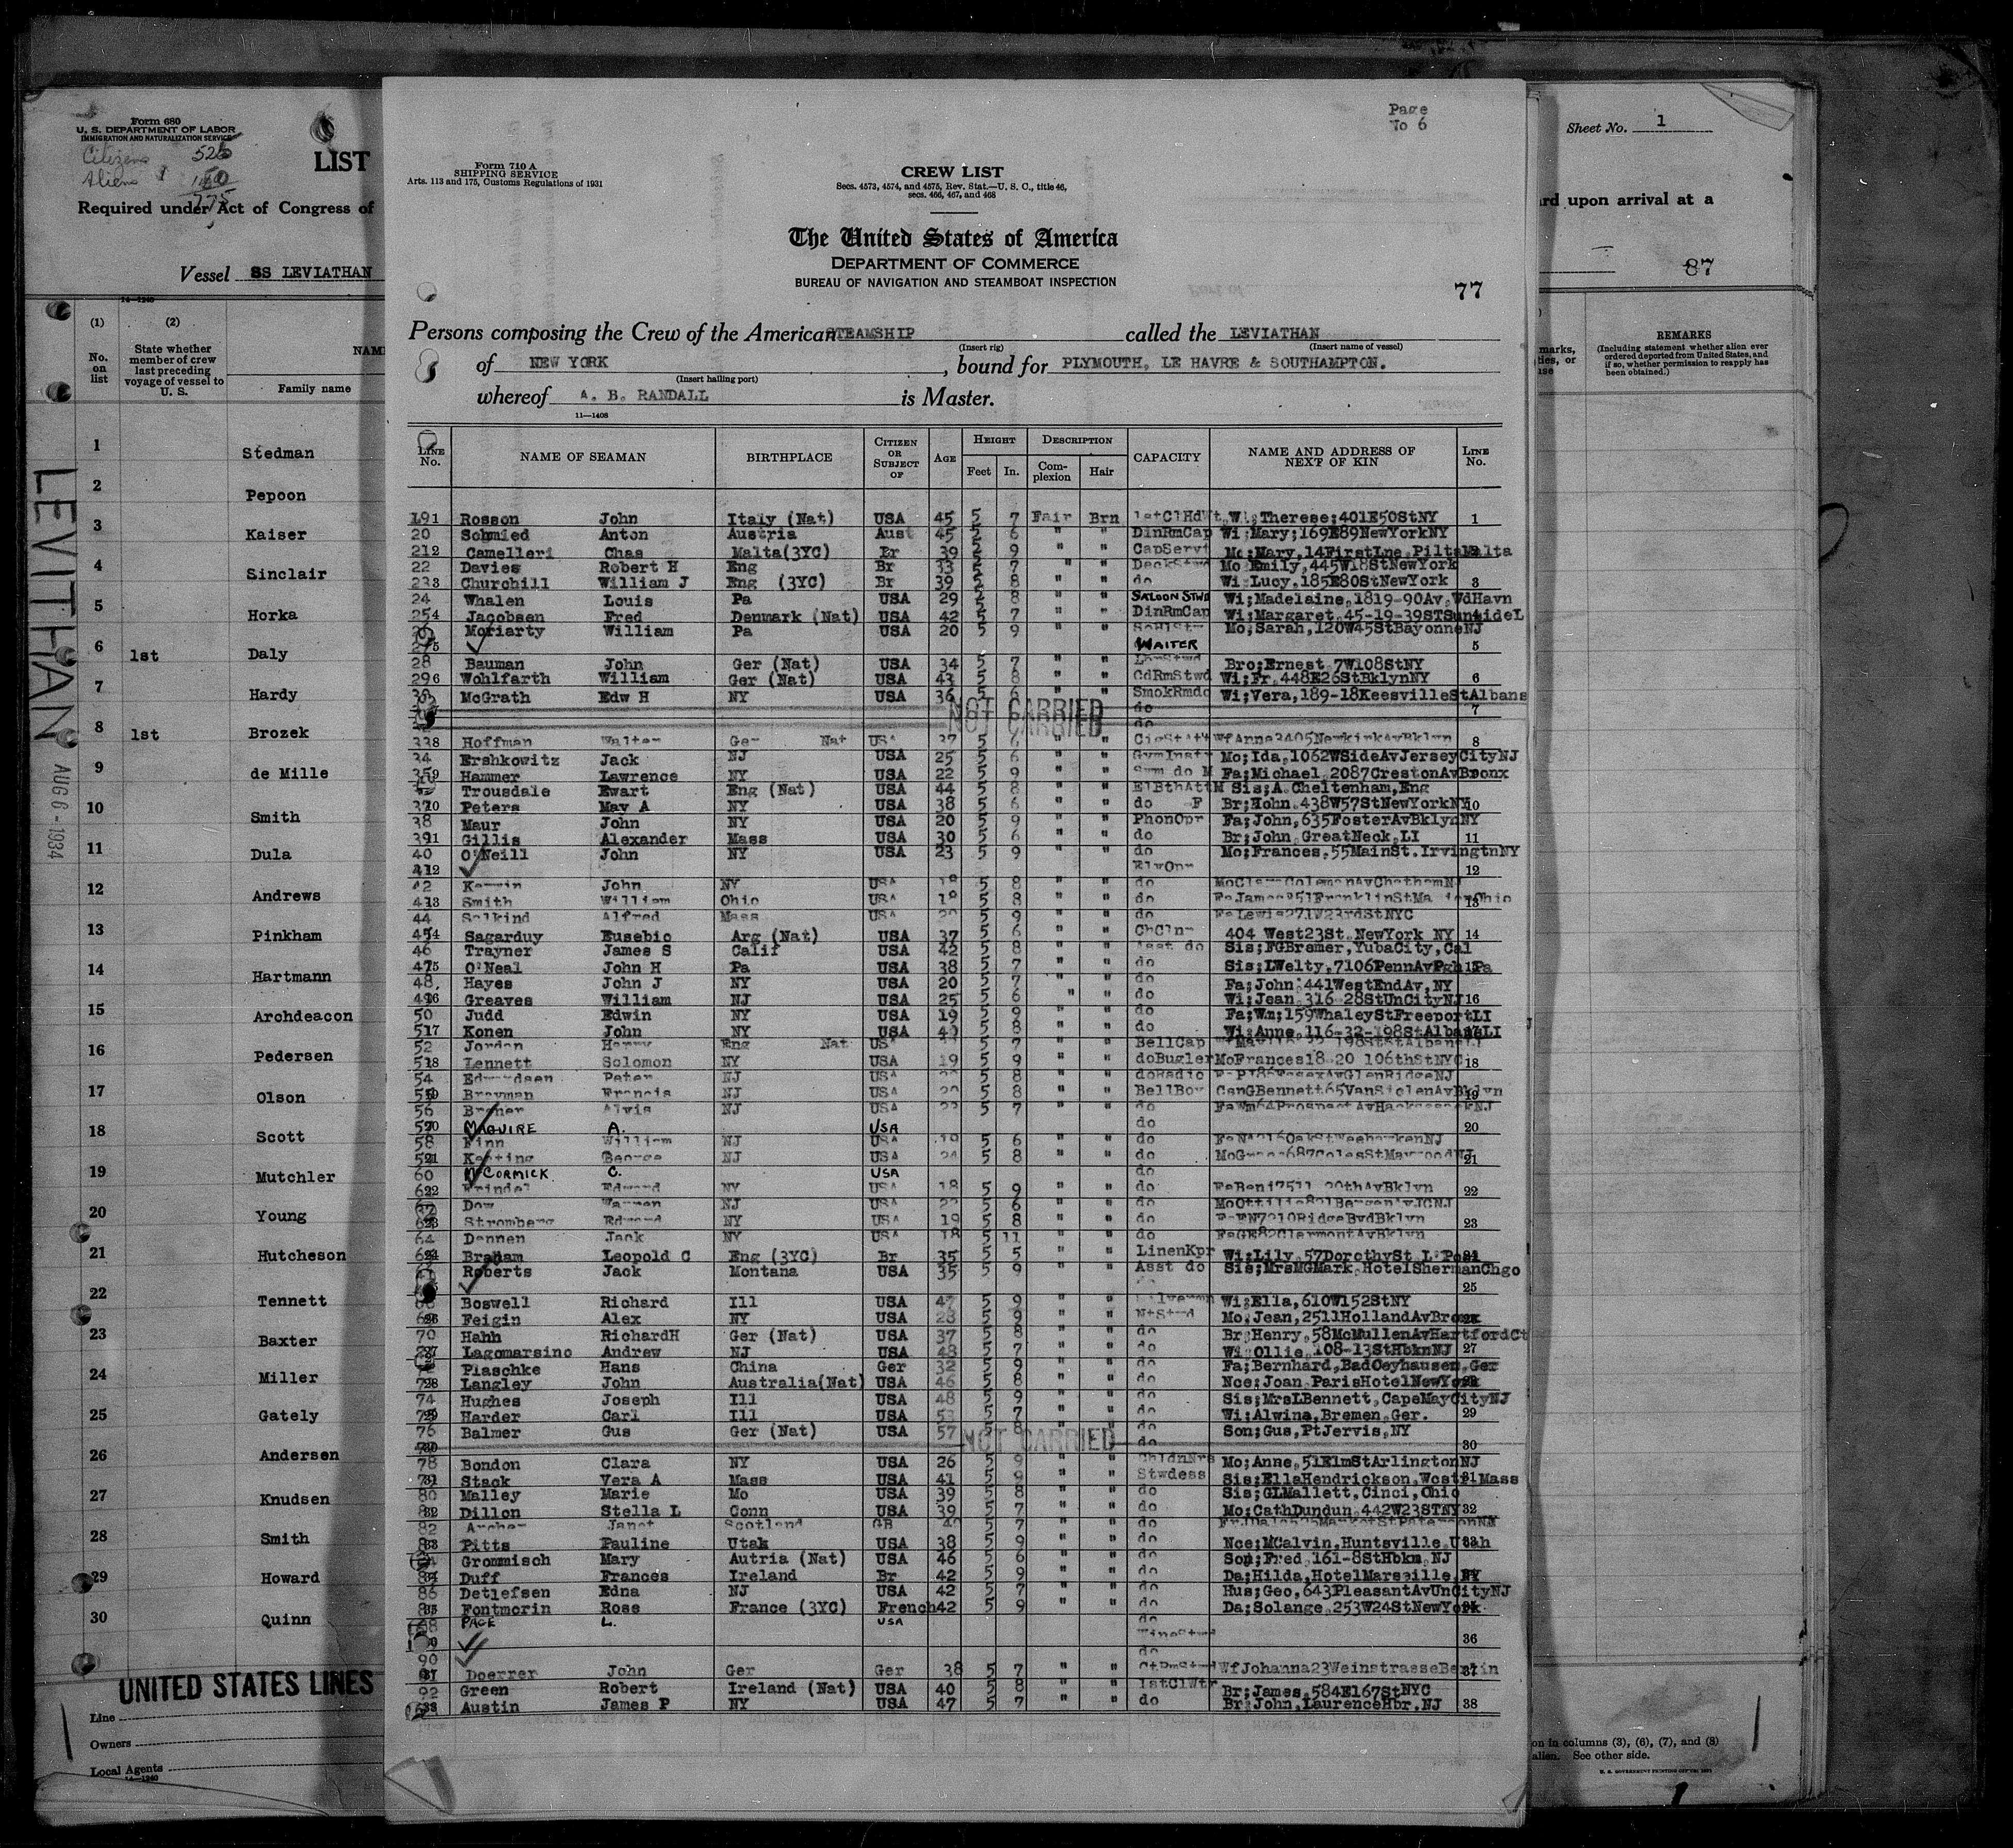 Form 680
U. S. DEPARTMENT OF LABOR
IMMIGRATION AND NATURALIZATION SERVICE
Citizens 526
Aliens
LIST
Required under Act of Congress of
Vessel SS LEVIATHAN
14—1240
(1) (2)
No. on list
State whether member of crew last preceding voyage of vessel to U. S.
NAME
Family name
1 Stedman
2 Pepoon
3 Kaiser
4 Sinclair
5 Horka
6 1st Daly
7 Hardy
8 1st Brozek
9 de Mille
10 Smith
11 Dula
12 Andrews
13 Pinkham
14 Hartmann
15 Archdeacon
16 Pedersen
17 Olson
18 Scott
19 Mutchler
20 Young
21 Hutcheson
22 Tennett
23 Baxter
24 Miller
25 Gately
26 Andersen
27 Knudsen
28 Smith
29 Howard
30 Quinn
UNITED STATES LINES
Line
Owners
Local Agents
14—1240
LEVIATHAN
AUG 6 - 1934
Page
No 6
Form 710 A
SHIPPING SERVICE
Arts. 113 and 175, Customs Regulations of 1931
CREW LIST
Secs. 4573, 4574, and 4575, Rev. Stat.—U. S. C., title 46,
secs. 466, 467, and 468
The United States of America
DEPARTMENT OF COMMERCE
BUREAU OF NAVIGATION AND STEAMBOAT INSPECTION
77
Persons composing the Crew of the American STEAMSHIP called the LEVIATHAN
(Insert rig) (Insert name of vessel)
of NEW YORK, bound for PLYMOUTH, LE HAVRE & SOUTHAMPTON.
(Insert hailing port)
whereof A. B. RANDALL is Master.
11—1408
LINE No. NAME OF SEAMAN BIRTHPLACE CITIZEN OR SUBJECT OF AGE HEIGHT DESCRIPTION CAPACITY NAME AND ADDRESS OF NEXT OF KIN LINE No.
Feet In. Complexion Hair
191 Rosson John Italy (Nat) USA 45 5 7 Fair Brn 1stClHdWt Wi; Therese;401E50StNY 1
20 Schmied Anton Austria Aust 45 5 6 " " DinRmCap Wi;Mary;169E89NewYorkNY
21 Camelleri Chas Malta(3YC) Br 39 5 9 " " CapServi Mo;Mary,14FirstLne Malta
22 Davies Robert H Eng Br 33 5 7 " " DeckStwd Mo Emily,445W18StNewYork
23 Churchill William J Eng (3YC) Br 39 5 8 " " do Wi Lucy,185E80StNewYork 3
24 Whalen Louis Pa USA 29 5 8 " " SALOON STWD Wi;Madelaine,1819-90Av,WdHavn
25 Jacobsen Fred Denmark (Nat) USA 42 5 7 " " DinRmCap Wi;Margaret,45-19-39ST
Moriarty William Pa USA 20 5 9 " " Mo;Sarah,120W45StBayonneNJ
WAITER 5
28 Bauman John Ger (Nat) USA 34 5 7 " " Bro;Ernest 7W108StNY
29 Wohlfarth William Ger (Nat) USA 43 5 8 " " CdRmStwd Wi;Fr,448E26StBklynNY 6
McGrath Edw H NY USA 36 5 6 " " SmokRmdo Wi;Vera,189-18KeesvilleStAlbans
NOT CARRIED do 7
NOT CARRIED do
33 Hoffman Walter Ger Nat USA 37 5 6 " " WfAnna3405NewkirkAvBklyn 8
34 Ershkowitz Jack NJ USA 25 5 6 " " GymInstr Mo;Ida,1062WSideAvJerseyCityNJ
35 Hammer Lawrence NY USA 22 5 9 " " Swm do M Fa;Michael,2087CrestonAvBronx
Trousdale Ewart Eng (Nat) USA 44 5 8 " " ElBthAttM Sis;A Cheltenham,Eng
37 Peters May A NY USA 38 5 6 " " do F Br;Hohn,438W57StNewYorkNY 10
38 Maur John NY USA 20 5 9 " " PhonOpr Fa;John,635FosterAvBklynNY
39 Gillis Alexander Mass USA 30 5 6 " " do Br;John GreatNeck,LI 11
40 O'Neill John NY USA 23 5 9 " " do Mo;Frances,55MainSt.IrvingtnNY
ElvOpr 12
42 John NY USA 18 5 8 " " do
43 Smith William Ohio USA 18 5 8 " " do
44 Salkind Alfred Mass USA 20 5 9 " " do FaLewis271W23rdStNYC
45 Sagarduy Eusebio Arg (Nat) USA 37 5 6 " " 404 West23St.NewYork NY 14
46 Trayner James S Calif USA 42 5 8 " " Asst do Sis;FGBremer,YubaCity,Cal
47 O'Neal John H Pa USA 38 5 7 " " do Sis;LWelty,7106PennAvPgh Pa
48 Hayes John J NY USA 20 5 7 " " do Fa;John 441WestEndAv,NY
49 Greaves William NJ USA 25 5 6 " " do Wi;Jean 316 28StUnCityNJ 16
50 Judd Edwin NY USA 19 5 9 " " do Fa;Wm;159WhaleyStFreeportLI
51 Konen John NY USA 40 5 8 " " do Wi;Anne,116-32-198StAlbansLI
52 Jordan Harry Eng Nat USA 5 7 " " BellCap
53 Lennett Solomon NY USA 19 5 9 " " doBugler MoFrances18 20 106thStNYC 18
54 Peter NJ USA 5 8 " " doRadio
55 Brayman Francis NJ USA 20 5 8 " " BellBoy 19
56 Alvis NJ USA 5 7 " " do
57 MAGUIRE A. USA do 20
58 Finn William NJ USA 19 5 6 " " do
59 Keating George NJ USA 5 8 " " do 21
60 McCORMICK C. USA do
Edward NY USA 18 5 9 " " do FaBenj7511 20thAvBklyn 22
Dow Warren NJ USA 5 6 " " do
Stromberg Edward NY USA 19 5 8 " " do 23
64 Dannen Jack NY USA 18 5 11 " " do FaGE82ClermontAvBklyn
Braham Leopold C Eng (3YC) Br 35 5 5 " " LinenKpr Wi;Lily,57DorothySt
Roberts Jack Montana USA 35 5 9 " " Asst do Sis;MrsMGMark HotelShermanChgo
25
Boswell Richard Ill USA 47 5 9 " " Wi;Ella,610W152StNY
Feigin Alex NY USA 28 5 9 " " NtStwd Mo,Jean,2511HollandAvBronx
70 Hahh RichardH Ger (Nat) USA 37 5 8 " " do Br Henry,58McMullenAvHartfordCt
Lagomarsino Andrew NJ USA 48 5 7 " " do Wi Ollie,108-13StHbknNJ 27
Plaschke Hans China Ger 32 5 9 " " do Fa;Bernhard,BadOeyhausen,Ger
Langley John Australia(Nat) USA 46 5 8 " " do Nce;Joan ParisHotelNewYork
74 Hughes Joseph Ill USA 48 5 9 " " do Sis;MrsLBennett,CapeMayCityNJ
Harder Carl Ill USA 53 5 7 " " do Wi;Alwina,Bremen,Ger. 29
76 Balmer Gus Ger (Nat) USA 57 5 8 " " do Son;Gus,PtJervis,NY
NOT CARRIED do 30
78 Bondon Clara NY USA 26 5 9 " " ChldnNrs Mo;Anne,51ElmStArlingtonNJ
Stack Vera A Mass USA 41 5 9 " " Stwdess Sis;EllaHendrickson, Mass
80 Malley Marie Mo USA 39 5 8 " " do Sis;GLMallett,Cinci,Ohio
Dillon Stella L Conn USA 39 5 7 " " do Mo;CathDundun,442W23STNY 32
82 Archer Janet Scotland GB 40 5 7 " " do
Pitts Pauline Utah USA 38 5 9 " " do Nce;MCalvin,Huntsville Utah
Grommisch Mary Autria (Nat) USA 46 5 6 " " do Son;Fred,161-8StHbkn,NJ
Duff Frances Ireland Br 42 5 9 " " do Da;Hilda,HotelMarseille NY
86 Detlefsen Edna NJ USA 42 5 7 " " do Hus;Geo,643PleasantAvUnCityNJ
Fontmorin Rose France (3YC) French 42 5 9 " " do Da;Solange,253W24StNewYork
PAGE L. USA do
WineStwd 36
90 do
Doerrer John Ger Ger 38 5 7 " " WfJohanna23WeinstrasseBerlin
92 Green Robert Ireland (Nat) USA 40 5 8 " " 1stClWtr Br;James,584E167StNYC
Austin James P NY USA 47 5 7 " " do Br;John,LaurenceHbr.NJ 38
Sheet No. 1
rd upon arrival at a
87
REMARKS
(Including statement whether alien ever ordered deported from United States, and if so, whether permission to reapply has been obtained.)
on in columns (3), (6), (7), and (8)
alien. See other side.
U. S. GOVERNMENT PRINTING OFFICE